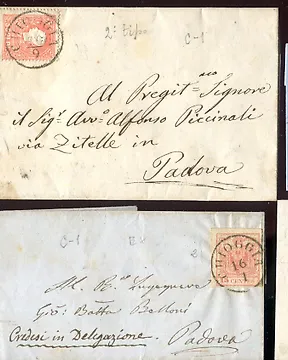 CHIOGGIA
9
2º tipo
C-1
Al Pregit.mo Signore
il Sigr Avvo Alfonso Piccinali
via Zitelle in
Padova
C-1
CHIOGGIA
16
Al. R.o Ingegnere
Gio: Batta Belloni
Credesi in Delegazione.
Padova